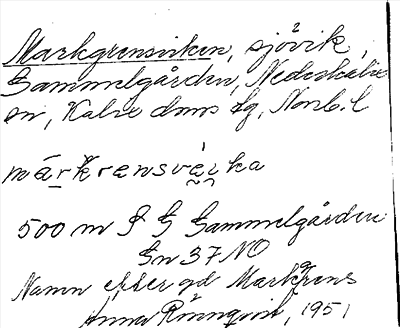 Markgrensviken, sjövik,
Gammelgården, Nederkalix
sn, Kalix dms tg, Norrb. l
märkrensvei̯ka
500 m S G Gammelgården
Gn 37 NO
Namn efter gd Markgrens
Anna Rönnqvist, 1951